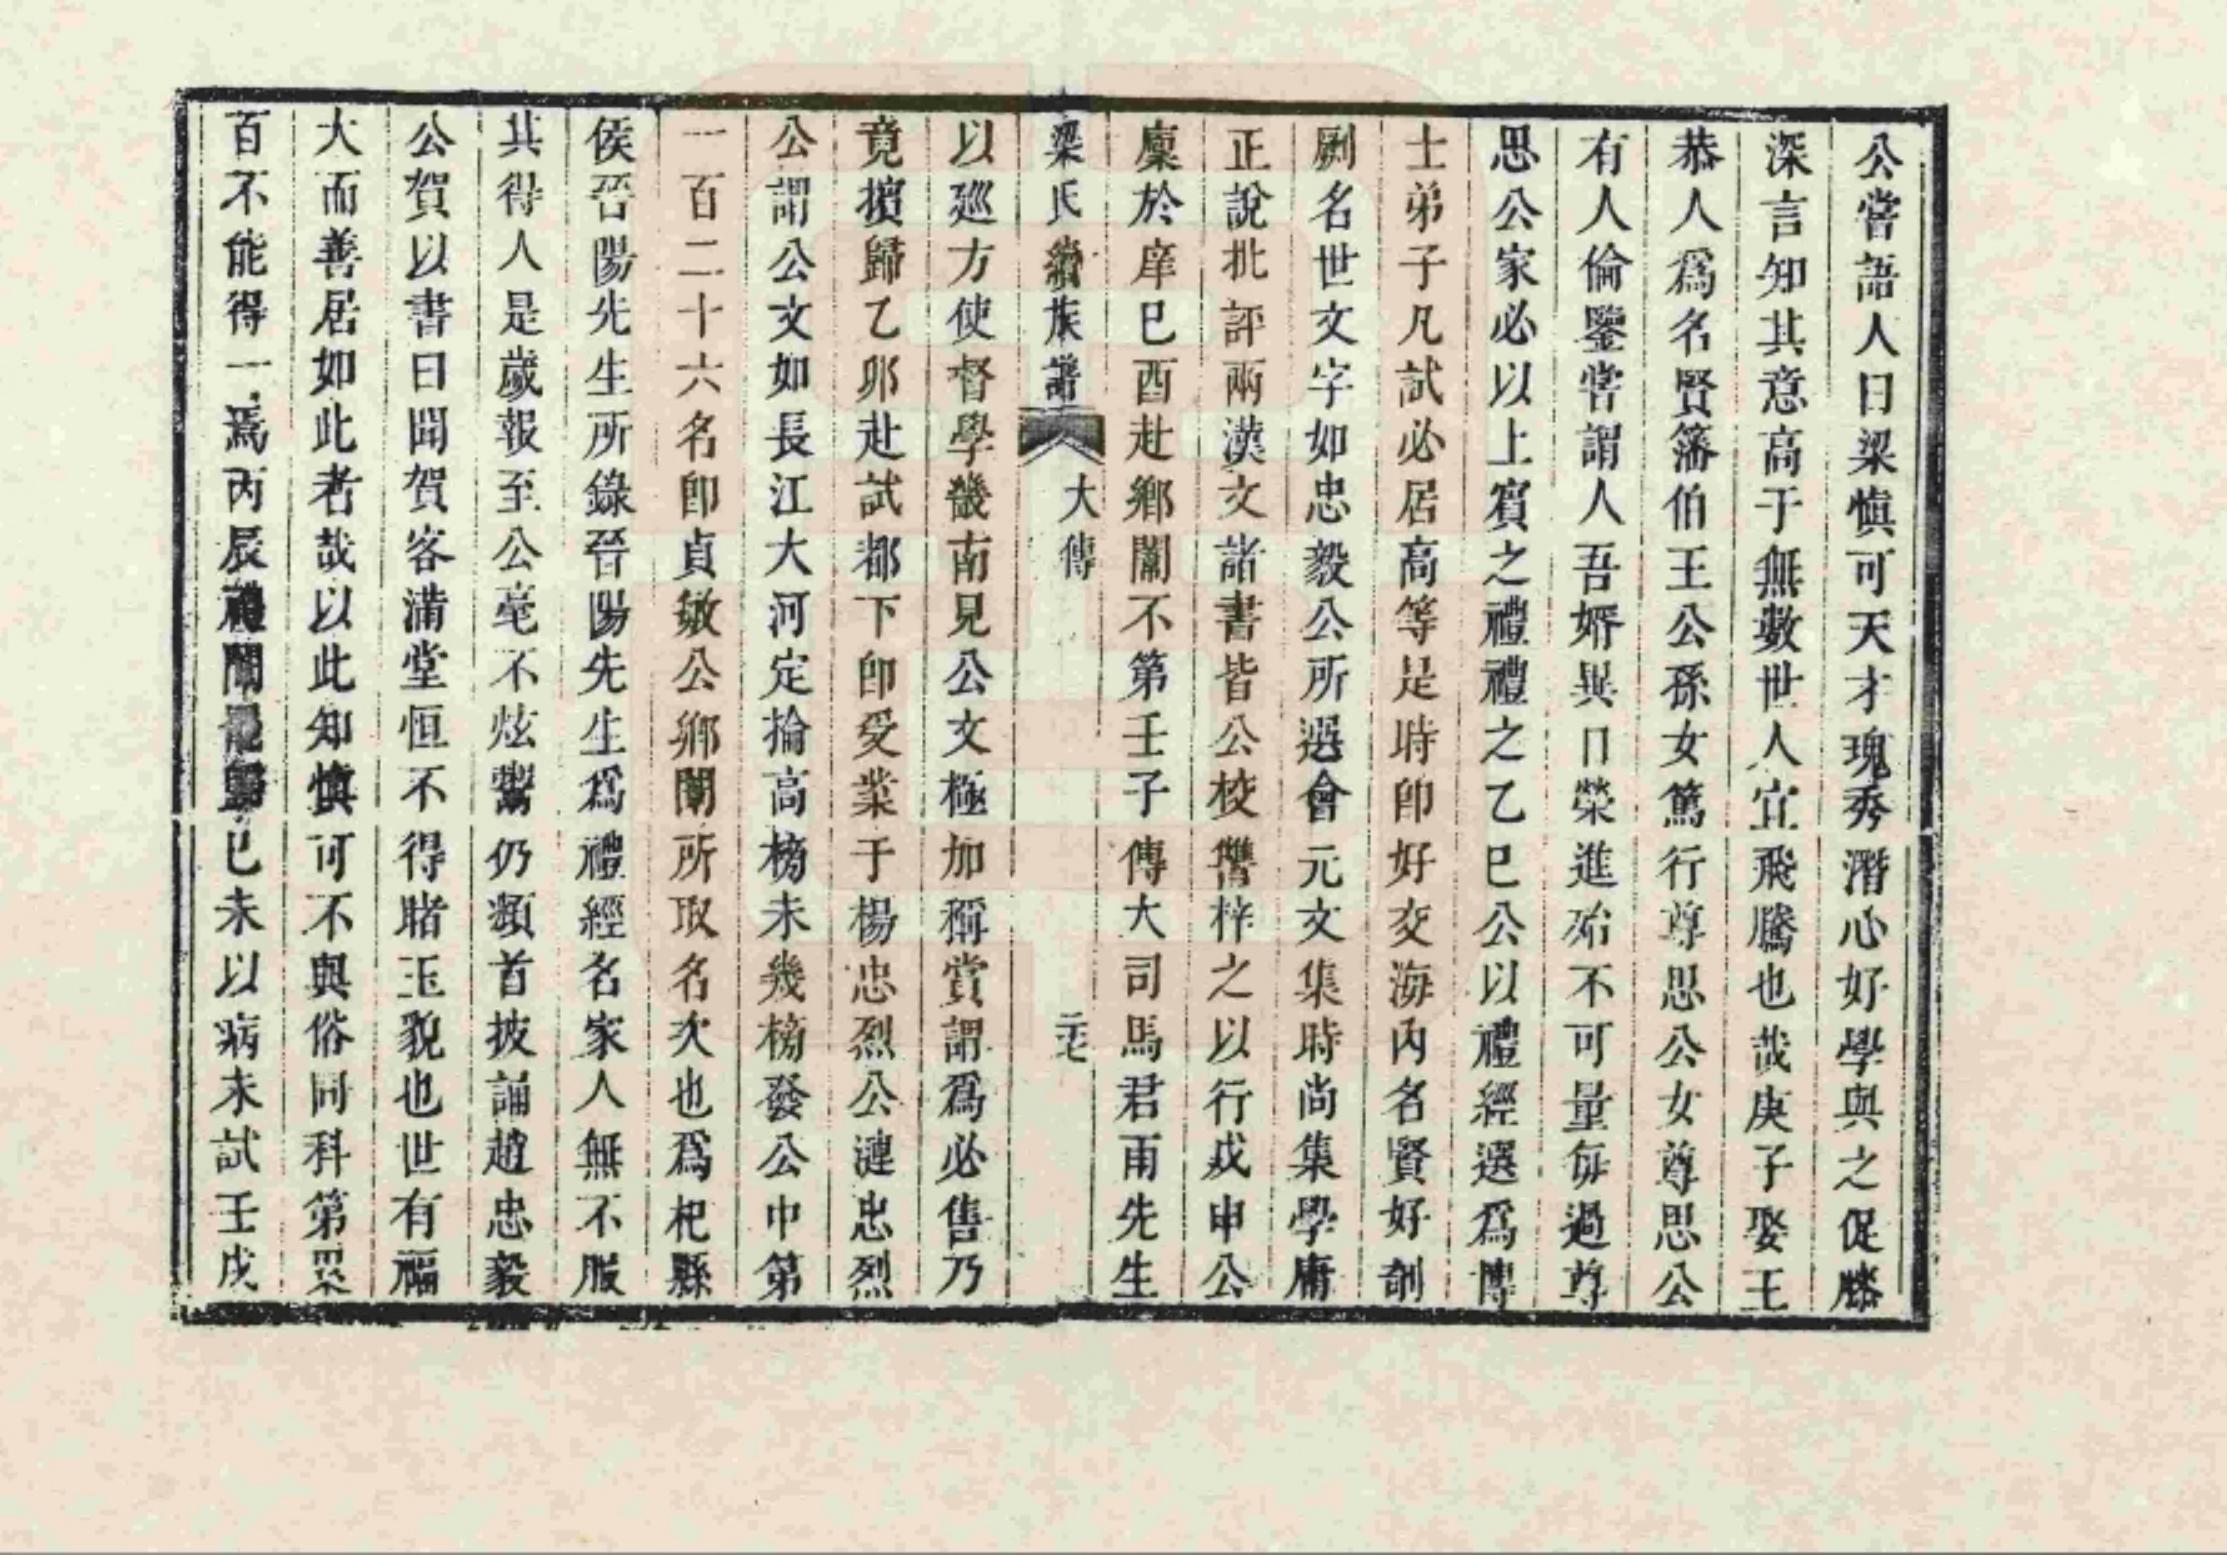 公嘗語人曰梁慎可天才瑰秀潛心好學與之促膝
深言知其意高于無數世人宜飛騰也哉庚子娶王
恭人爲名賢藩伯王公孫女篤行尊思公女尊思公
有人倫鑒嘗謂人吾婿異日榮進殆不可量每過尊
思公家必以上賓之禮禮之乙巳公以禮經選爲博
士弟子凡試必居高等是時卽好交海內名賢好剞
劂名世文字如忠毅公所選會元文集時尚集學庸
正說批評兩漢文諸書皆公校讐梓之以行戊申公
廩於庠巳酉赴鄉闈不第壬子傳大司馬君雨先生
梁氏續族譜 大傳 二七
以廵方使督學畿南見公文極加稱賞謂爲必售乃
竟擯歸乙卯赴試都下卽受業于楊忠烈公漣忠烈
公謂公文如長江大河定掄高榜未幾榜發公中第
一百二十六名卽貞敏公鄉闈所取名次也爲杞縣
侯晉陽先生所錄晉陽先生爲禮經名家人無不服
其得人是歲報至公毫不炫鬻仍頮首披誦趙忠毅
公賀以書曰聞賀客滿堂恒不得睹玉貌也世有福
大而善居如此者哉以此知慎可不與俗同科第眾
百不能得一焉丙辰禮闈已未以病未試壬戌